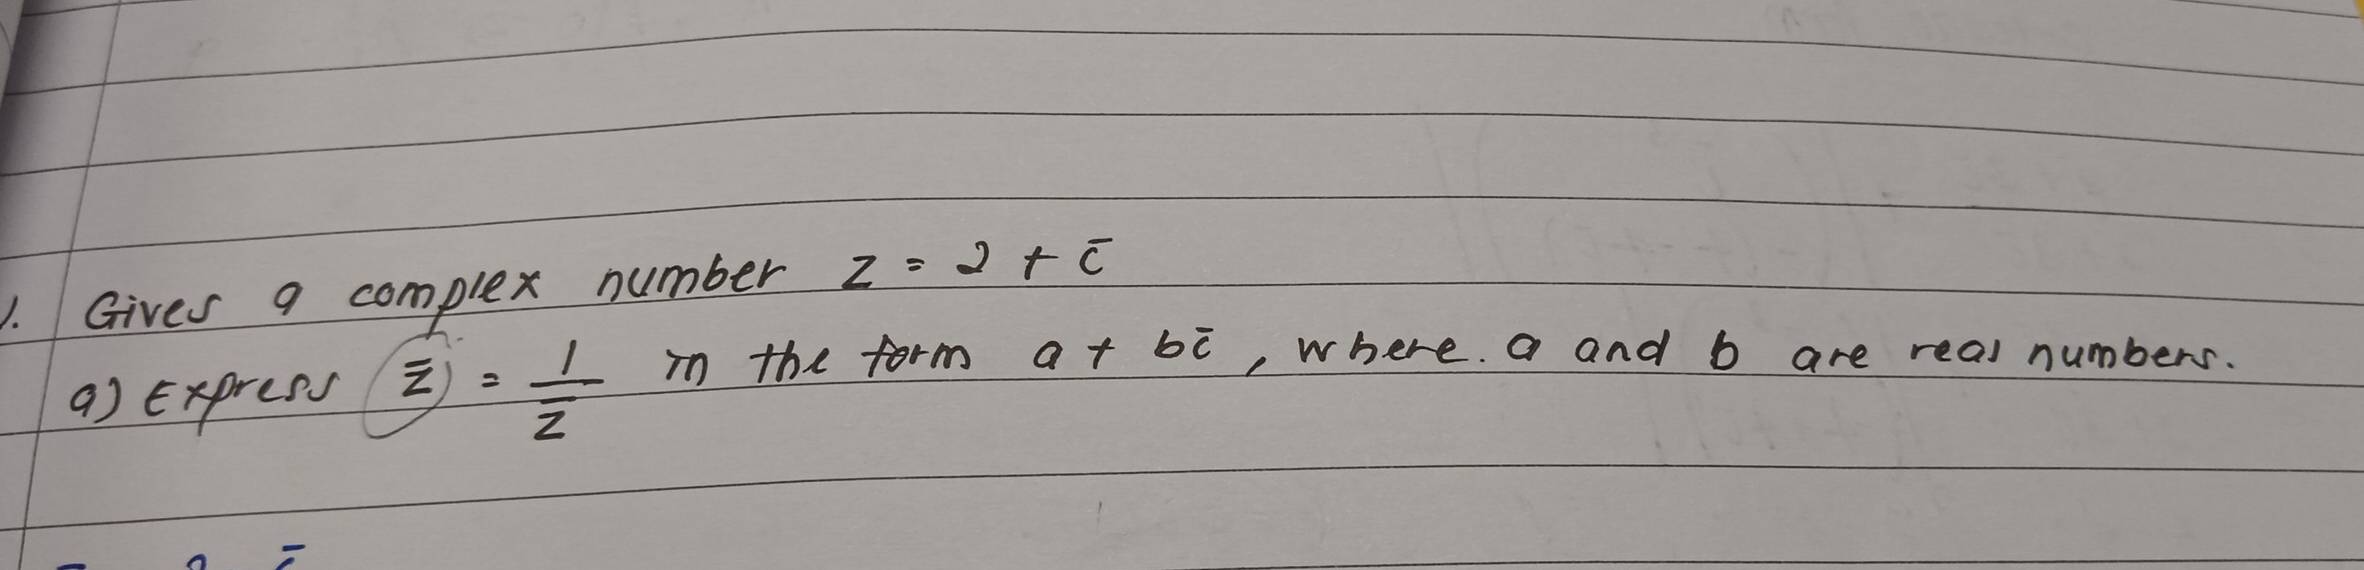 1. Gives a complex number z = 2 + i
a) Express z̄ = 1/z̄ in the form a + bi, where a and b are real numbers.